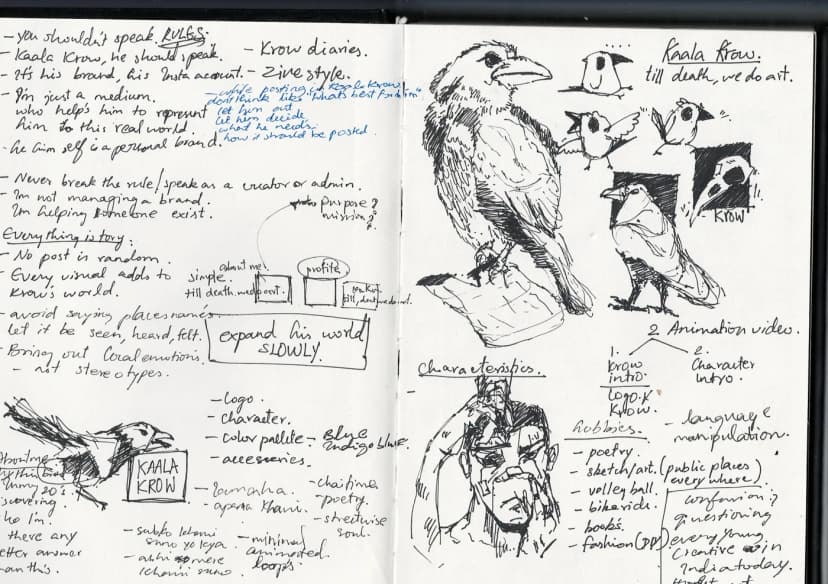 - you shouldn't speak RULES:
- Kaala Krow, he should speak.
- It's his brand, his Insta account.
- I'm just a medium.
who help's him to represent
him to this real world.
- he him self is a personal brand.
- Krow diaries.
- Zine style.
- while posting in Kaala Krow/
dont think like "what's best for him"
let him out
let him decide
what he needs.
how it should be posted.
- Never break the rule/speak as a curator or admin.
- I'm not managing a brand.
I'm helping someone exist.
purpose?
mission?
Everything is tory:
- No post is random.
- Every visual adds to
Krow's world.
- avoid saying places names.
let it be seen, heard, felt.
- Bring out local emotions.
- not stereotypes.
about me.
simple.
till death. we do art.
profile
till death we do art.
expand his world
SLOWLY.
- Logo.
- character.
- color pallete - Blue
Indigo blue.
- accesories.
KAALA
KROW
About me
my 20's.
there any
etter answer
an this.
- apana
- chai time
- poetry.
- streetwise
soul.
- minimal
animated
loops.
- subko
suno
suno.
Kaala Krow.
till death, we do art.
KROW
2 Animation video.
1.
Krow
intro.
logo.
Krow.
2.
Character
Intro.
Characteristics.
-
hobbies.
- poetry.
- sketch/art. (public places)
every where)
- volley ball.
- bike ride.
- books.
- fashion
- language
manipulation.
confusion?
questioning
every young
creative in
India today.